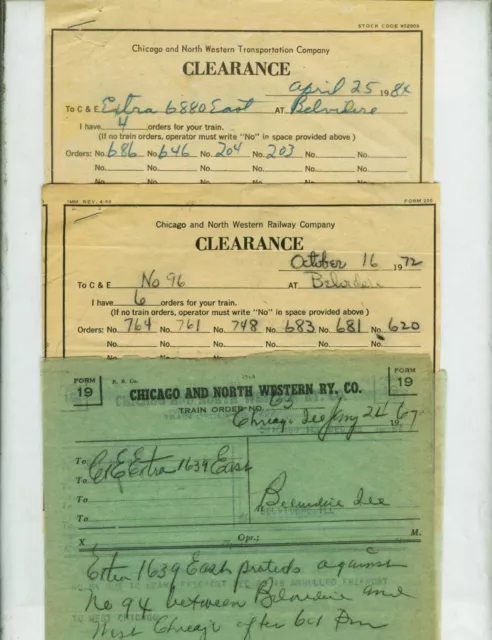 STOCK CODE
Chicago and North Western Transportation Company
CLEARANCE
April 25 198
To C & E Extra 6880 East AT Belvidere
I have 4 orders for your train.
(If no train orders, operator must write "No" in space provided above)
Orders: No. 686 No. 646 No. 204 No. 203 No. No.
No. No. No. No. No. No.
REV. FORM
Chicago and North Western Railway Company
CLEARANCE
October 16 1972
To C & E No 96 AT Belvidere
I have 6 orders for your train.
(If no train orders, operator must write "No" in space provided above)
Orders: No. 764 No. 761 No. 748 No. 683 No. 681 No. 620
No. No. No. No. No. No.
FORM 19 FORM 19
CHICAGO AND NORTH WESTERN RY. CO.
TRAIN ORDER NO. 63
Chicago Ill Jany 24 1967
To C&E Extra 1639 East
To
To Belvidere Ill
To
X Opr.; M.
Extra 1639 East protects against
No 94 between Belvidere and
West Chicago after 601 pm